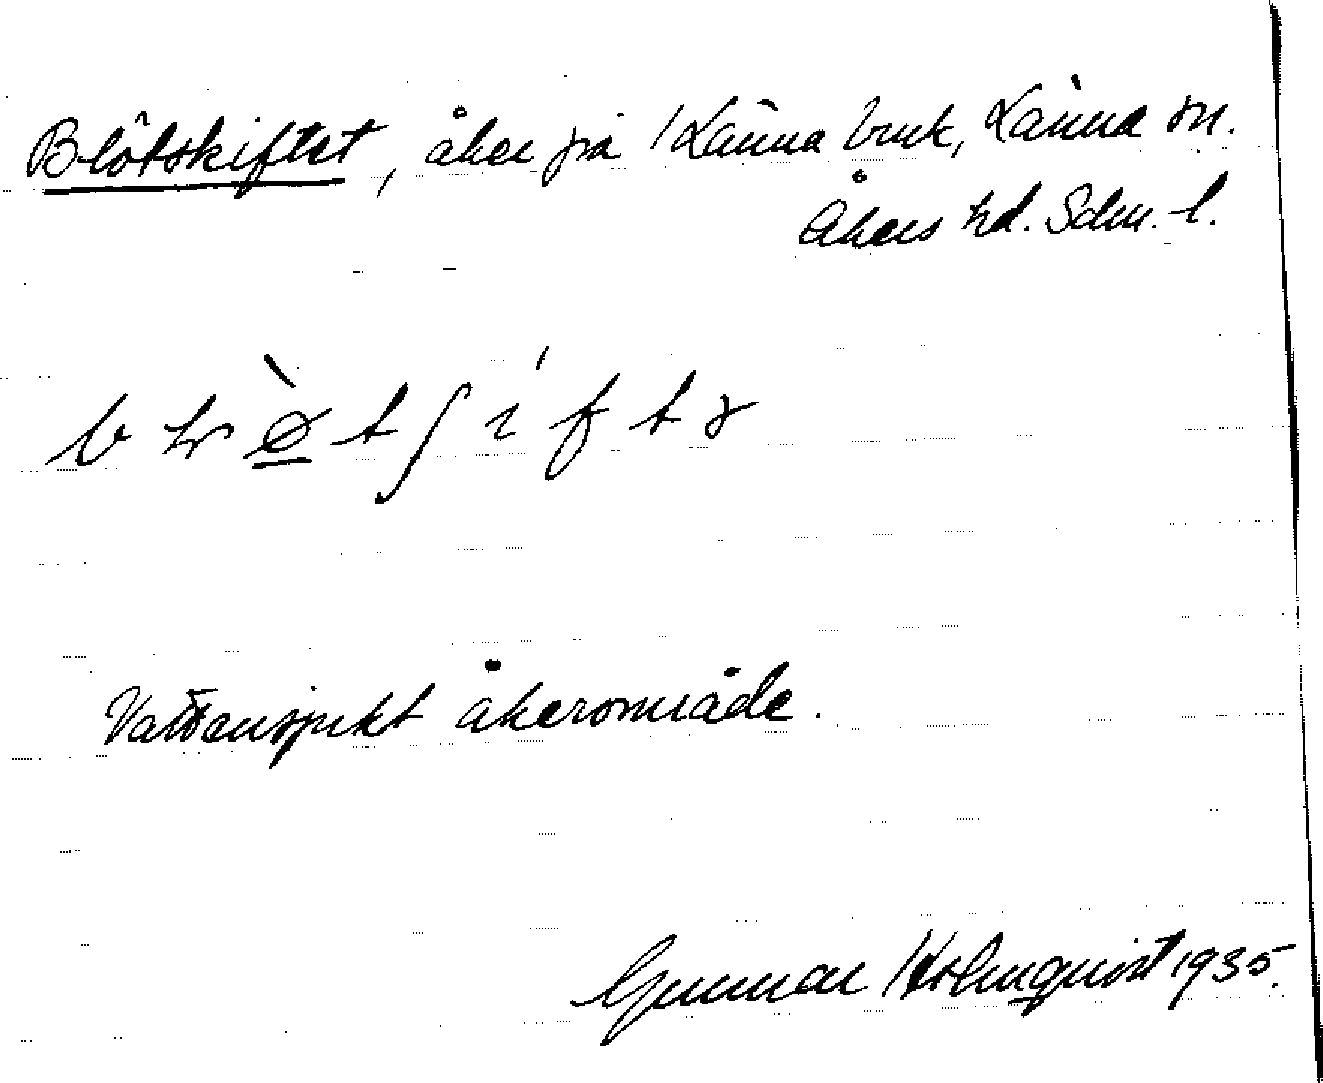 Blötskiftet, åker på Länna bruk, Länna sn.
Åkers hd. Södm. l.
Vattensjukt åkerområde.
Gunnar Holmquist 1935.